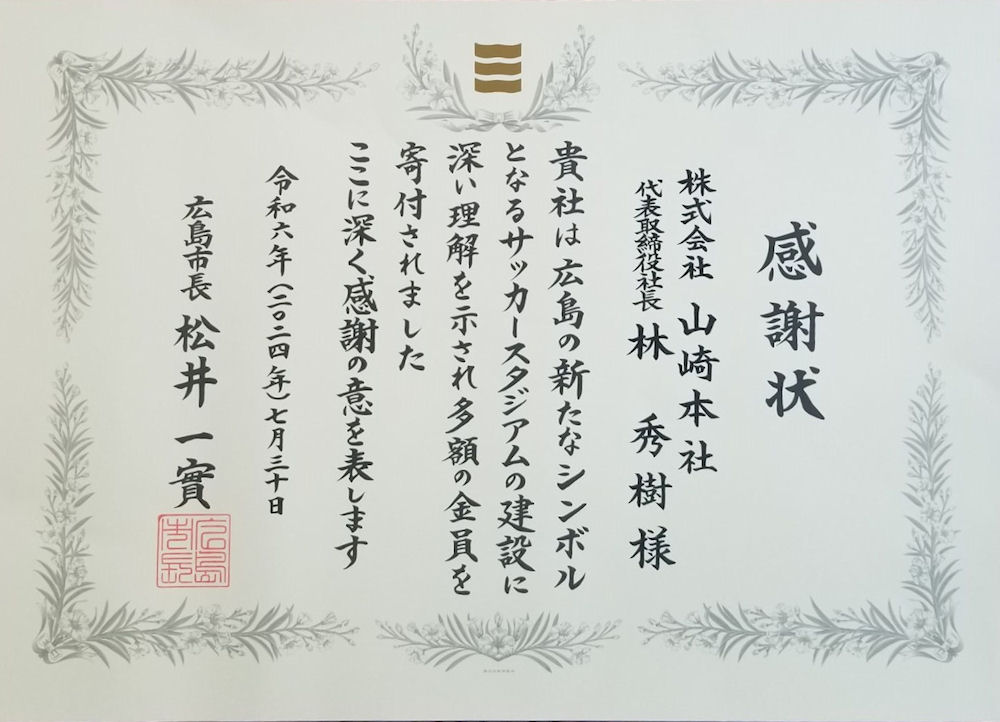 感謝状
株式会社 山崎本社
代表取締役社長 林 秀樹 様
貴社は広島の新たなシンボル
となるサッカースタジアムの建設に
深い理解を示され多額の金員を
寄付されました
ここに深く感謝の意を表します
令和六年(二〇二四年)七月三十日
広島市長 松井 一實
広島
市長